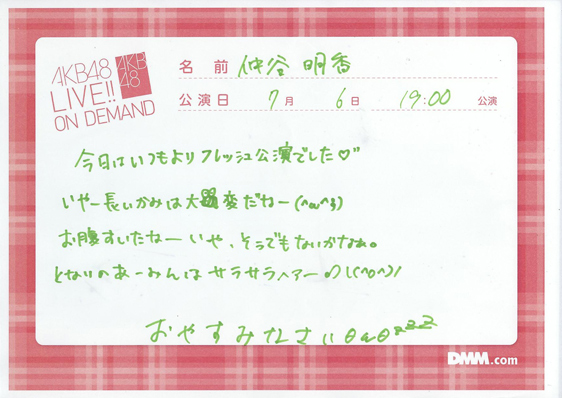 AKB48
LIVE!!
ON DEMAND
AKB
48
名 前 仲谷 明香
公演日 7月 6日 19:00 公演
今日はいつもよりフレッシュ公演でした♡"
いやー長いかみは大変だねー(^ω^;)
お腹すいたねーいや、そうでもないかなぁ。
となりのあーみんはサラサラヘアーの\(^o^)/
おやすみなさいθωθzzz
DMM.com